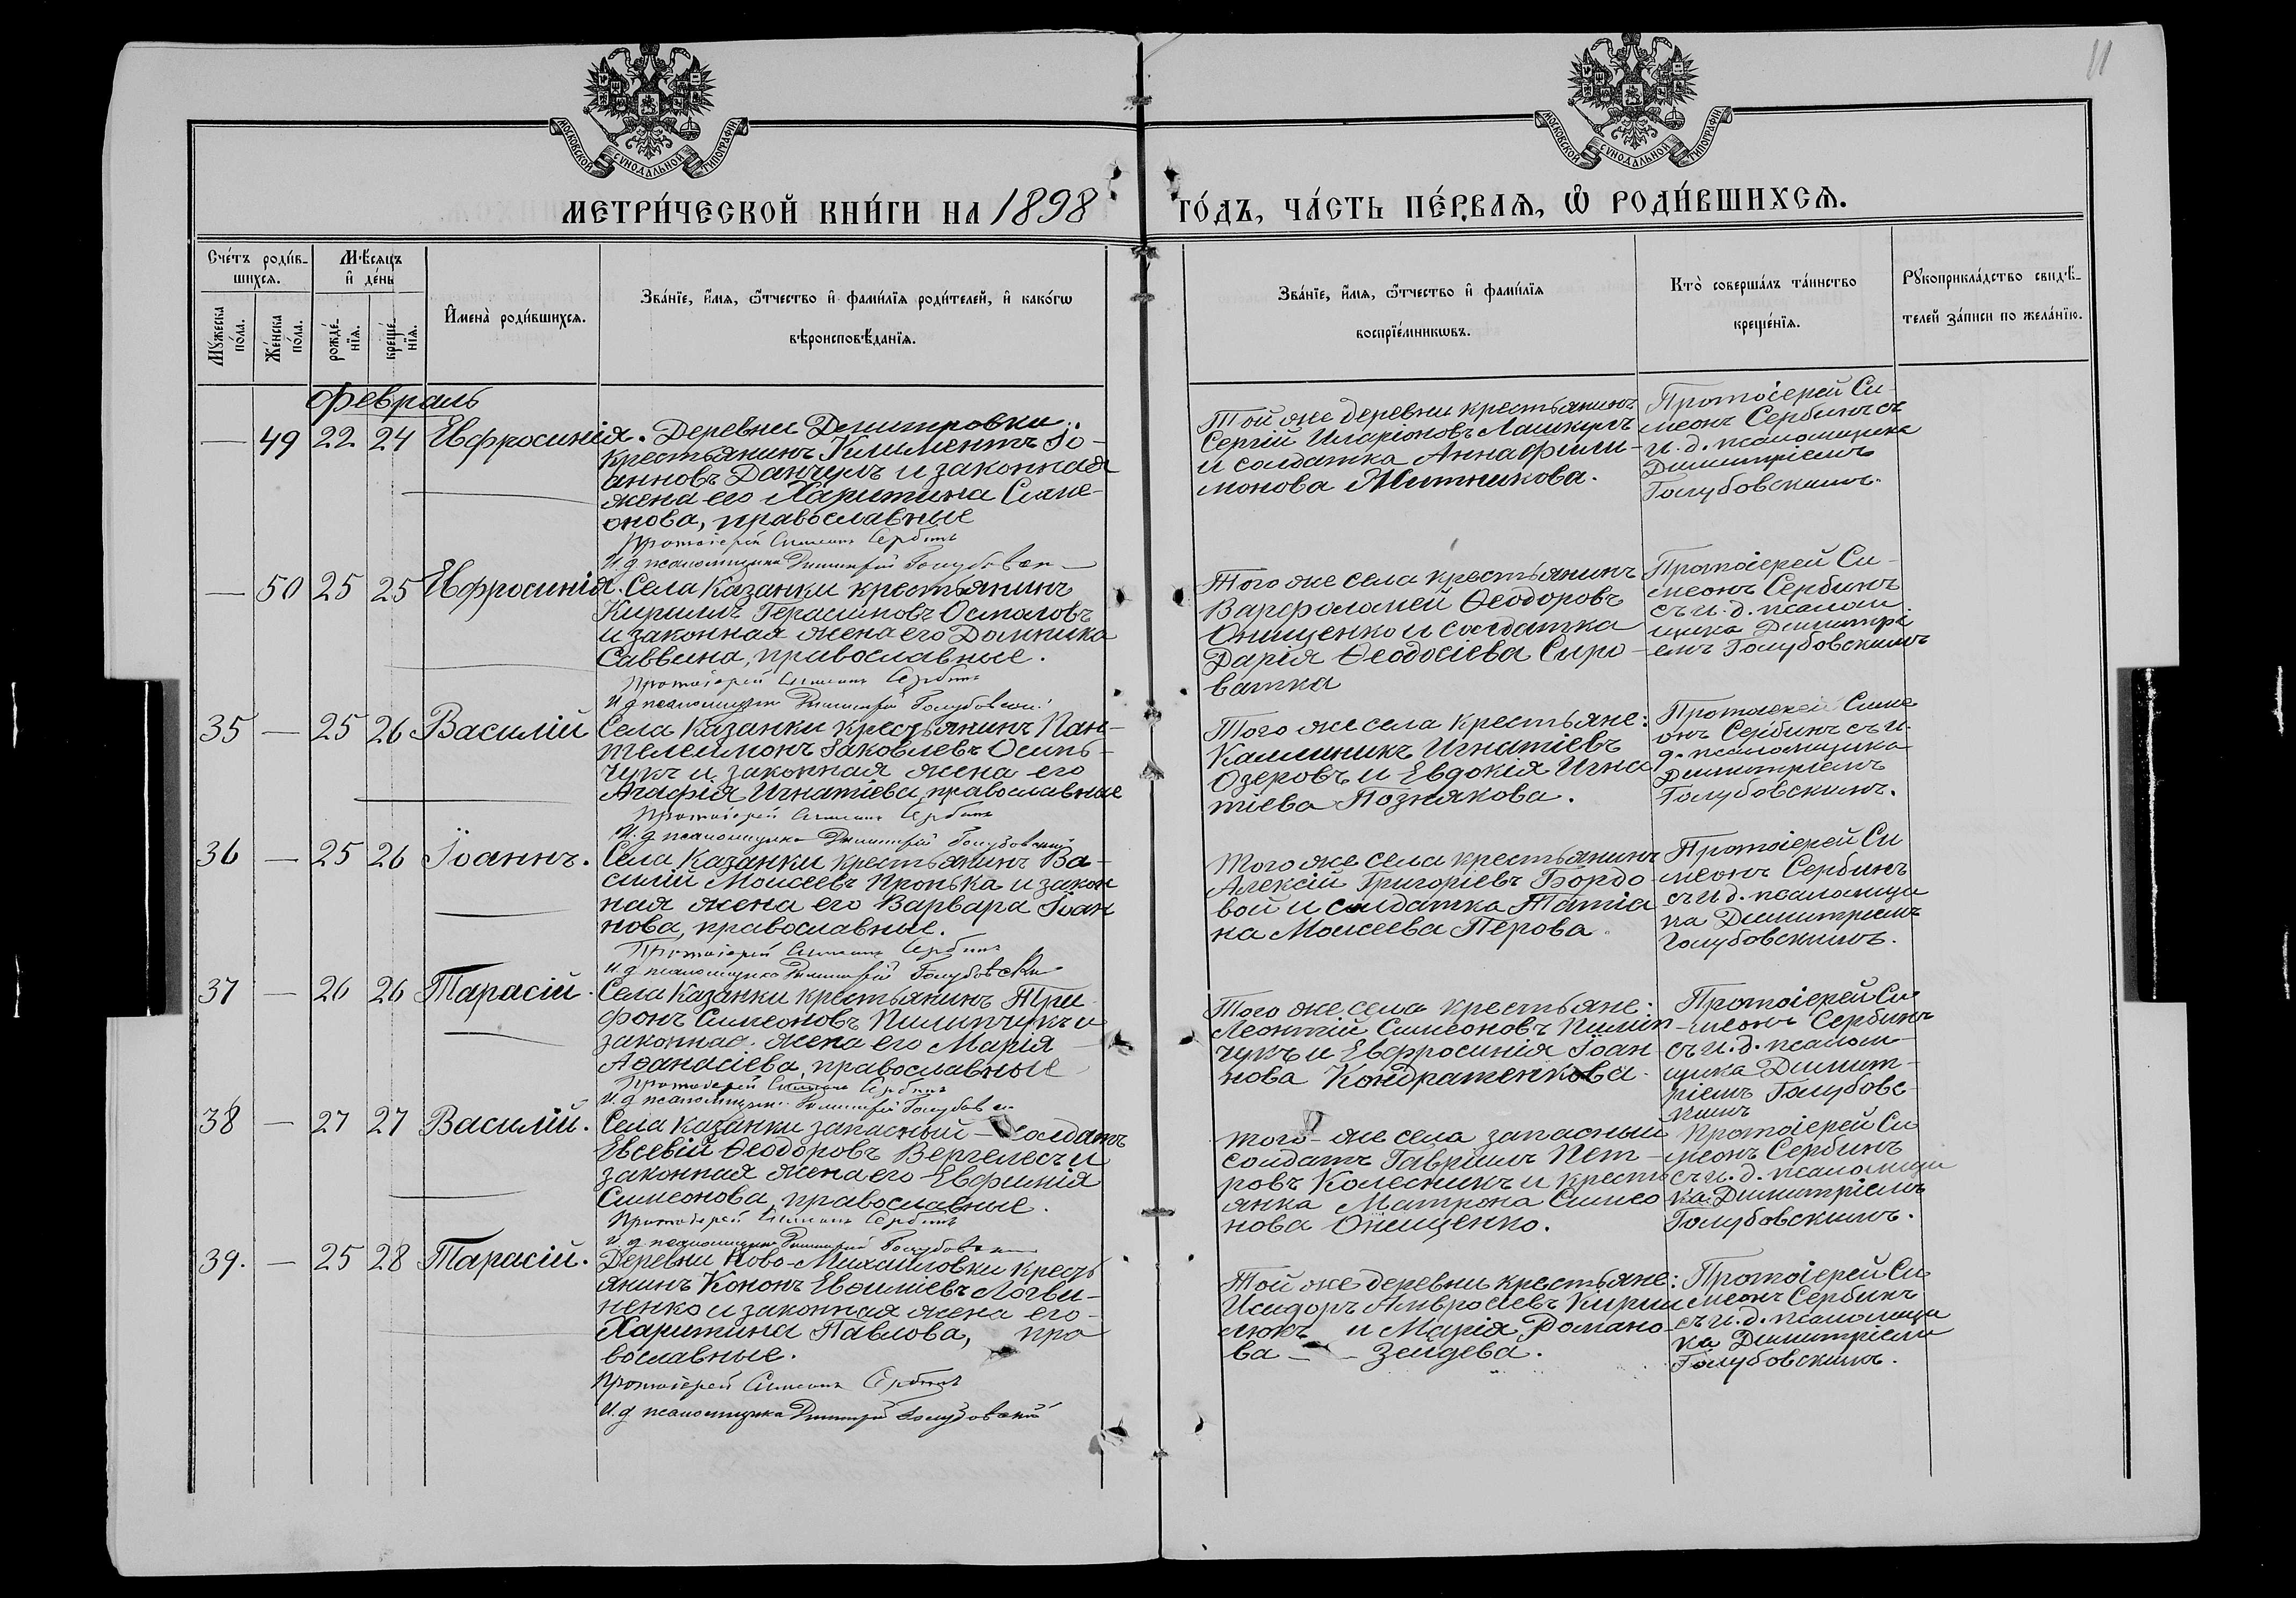 11
МОСКОВСКОЙ СѴНОДАЛЬНОЙ ТИПОГРАФІИ
МОСКОВСКОЙ СѴНОДАЛЬНОЙ ТИПОГРАФІИ
МЕТРИ́ЧЕСКОЙ КНИ́ГИ НА 1898
ГО́ДЪ, ЧА́СТЬ ПЕ́РВАѦ, Ѡ РОДИ́ВШИХСѦ.
Сче́тъ роди́в-
шихся.
Мꙋ́жеска
по́ла.
Же́нска
по́ла.
Мѣ́сяцъ
и҆ де́нь
рожде́-
нїя.
креще́-
нїя.
И҆мена̀ роди́вшихся.
Зва́нїе, и҆́мя, ѻ҆́тчество и҆ фами́лїя роди́телей, и҆ како́гѡ
вѣроисповѣ́данїя.
Зва́нїе, и҆́мя, ѻ҆́тчество и҆ фами́лїя
воспрїе́мникѡвъ.
Кто̀ соверша́лъ та́инство
креще́нїя.
Рꙋкоприкла́дство свидѣ́-
телей за́писи по жела́нїю.
Февраль
— 49 22 24 Евфросинія.
Деревни Димитровки
крестьянинъ Климентъ Іо-
анновъ Данчулъ и законная
жена его Харитина Симе-
онова, православные
Протоіерей Симеонъ Сербинъ
И. д. псаломщика Димитрій Голубовскій
Той же деревни крестьянинъ
Сергій Иларіоновъ Лашкулъ
и солдатка Анна Фили-
монова Митникова.
Протоіерей Си-
меонъ Сербинъ съ
и. д. псаломщика
Димитріемъ
Голубовскимъ.
— 50 25 25 Евфросинія.
Села Казанки крестьянинъ
Кириллъ Герасимовъ Осталовъ
и законная жена его Домника
Саввина, православные.
Протоіерей Симеонъ Сербинъ
И. д. псаломщика Димитрій Голубовскій
Того же села крестьянинъ
Варфоломей Ѳеодоровъ
Онищенко и солдатка
Дарія Ѳеодосіева Сиро-
ватка
Протоіерей Си-
меонъ Сербинъ
съ и. д. псалом-
щика Димитрі-
емъ Голубовскимъ
35 — 25 26 Василій
Села Казанки крестьянинъ Пан-
телеимонъ Іаковлевъ Осипь-
чукъ и законная жена его
Агафія Игнатіева, православные
Протоіерей Симеонъ Сербинъ
И. д. псаломщика Димитрій Голубовскій
Того же села крестьяне:
Каллиникъ Игнатіевъ
Озеровъ и Евдокія Игна
тіева Познякова.
Протоіерей Симе
онъ Сербинъ съ и.
д. псаломщика
Димитріемъ
Голубовскимъ.
36 — 25 26 Іоаннъ.
Села Казанки крестьянинъ Ва-
силій Моисеевъ Пронька и закон
ная жена его Варвара Іоан
нова, православные.
Протоіерей Симеонъ Сербинъ
И. д. псаломщика Димитрій Голубовскій
Того же села крестьянинъ
Алексій Григоріевъ Бордо-
вой и солдатка Татіа
на Моисеева Перова.
Протоіерей Си
меонъ Сербинъ
съ и. д. псаломщи
ка Димитріемъ
Голубовскимъ.
37 — 26 26 Тарасій.
Села Казанки крестьянинъ Три
фонъ Симеоновъ Пилипчукъ и
законная жена его Марія
Аѳанасіева, православные
Протоіерей Симеонъ Сербинъ
И. д. псаломщика Димитрій Голубовскій
Того же села крестьяне:
Леонтій Симеоновъ Пилип-
чукъ и Евфросинія Іоан
нова Кондратенкова.
Протоіерей Си
меонъ Сербинъ
съ и. д. псалом-
щика Димит-
ріемъ Голубовс-
кимъ
38 — 27 27 Василій.
Села Казанки запасный — солдатъ
Евсевій Ѳеодоровъ Вергелесъ и
законная жена его Евфимія
Симеонова, православные.
Протоіерей Симеонъ Сербинъ
И. д. псаломщика Димитрій Голубовскій
Того же села запасный
солдатъ Гавріилъ Пет-
ровъ Колесникъ и кресть
янка Матрона Симео
нова Онищенко.
Протоіерей Си
меонъ Сербинъ
съ и. д. псаломщи
ка Димитріемъ
Голубовскимъ.
39. — 25 28 Тарасій.
Деревни Ново-Михайловки кресть
янинъ Кононъ Евѳиміевъ Логви-
ненко и законная жена его-
Харитина Павлова, пра
вославные.
Протоіерей Симеонъ Сербинъ
И. д. псаломщика Димитрій Голубовскій
Той же деревни крестьяне:
Исидоръ Амвросіевъ Кирил
люкъ и Марія Романо-
ва — Зейдева.
Протоіерей Си
меонъ Сербинъ
съ и. д. псаломщи
ка Димитріемъ
Голубовскимъ.